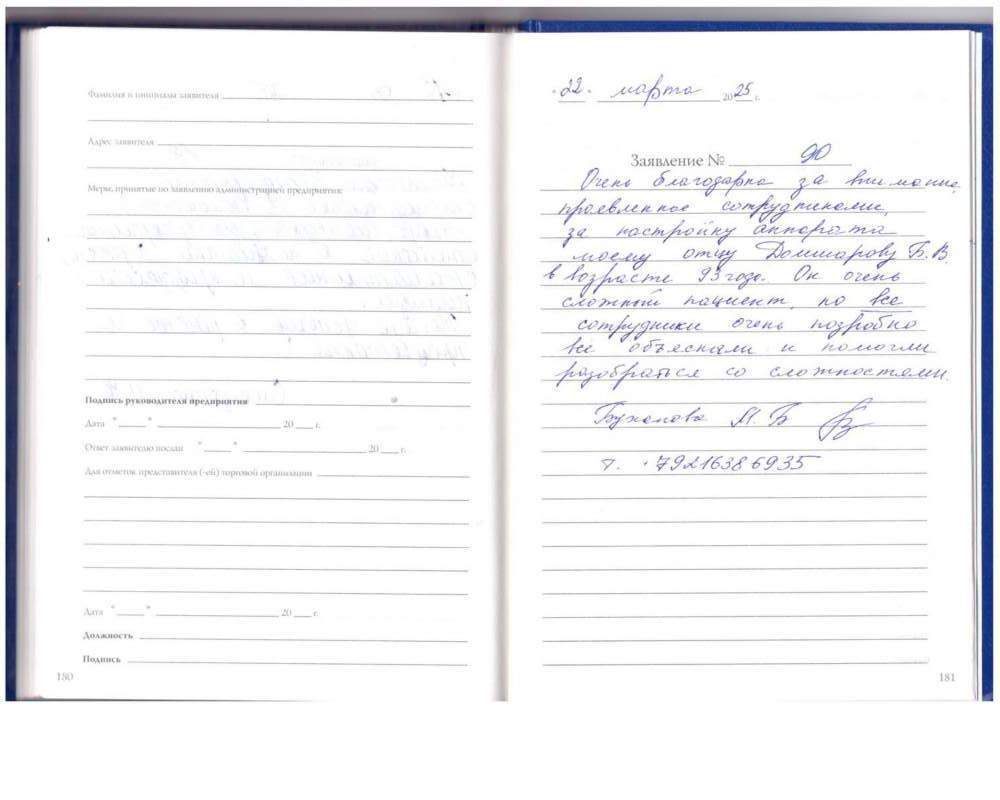 Фамилия и инициалы заявителя
Адрес заявителя
Меры, принятые по заявлению администрацией предприятия:
Подпись руководителя предприятия
Дата " " 20 г.
Ответ заявителю послан " " 20 г.
Для отметок представителя (-ей) торговой организации
Дата " " 20 г.
Должность
Подпись
180
"22" марта 2025 г.
Заявление № 90
Очень благодарна за внимание,
проявленное сотрудниками,
за настройку аппарата
моему отцу Домшарову Б.В.
в возрасте 93 года. Он очень
сложный пациент, но все
сотрудники очень подробно
все объяснили и помогли
разобраться со сложностями.
М. Б
т. +79216386935
181